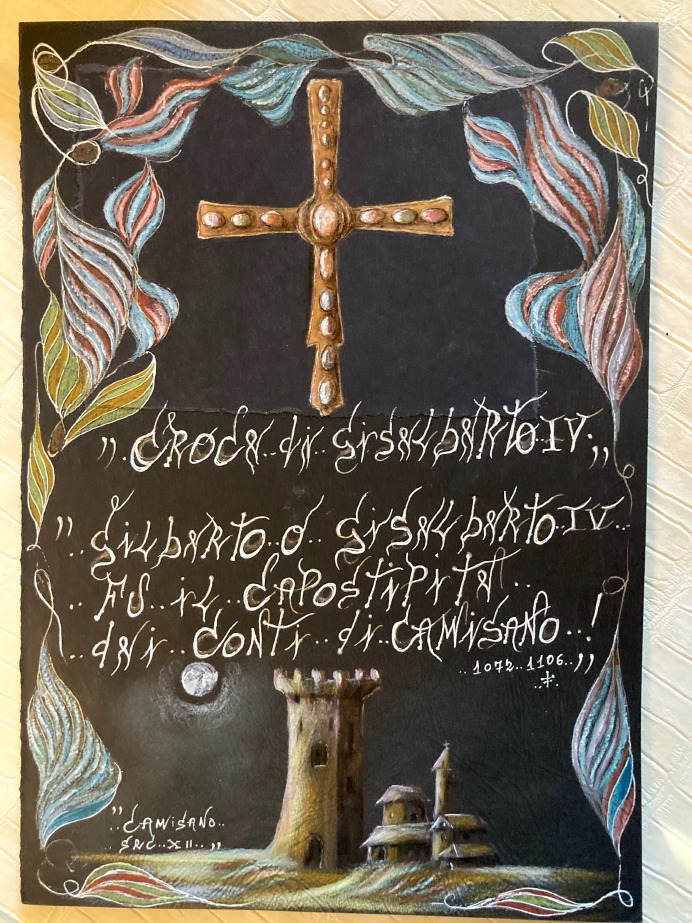 „..CROCE..DI..GISALBERTO..IV..„
„..GILBERTO..O..GISALBERTO..IV..
..FU..IL..CAPOSTIPITE..
..DEI..CONTI..DI..CAMISANO..!
..1072..1106..„
„..CAMISANO..
..SEC..XII..„